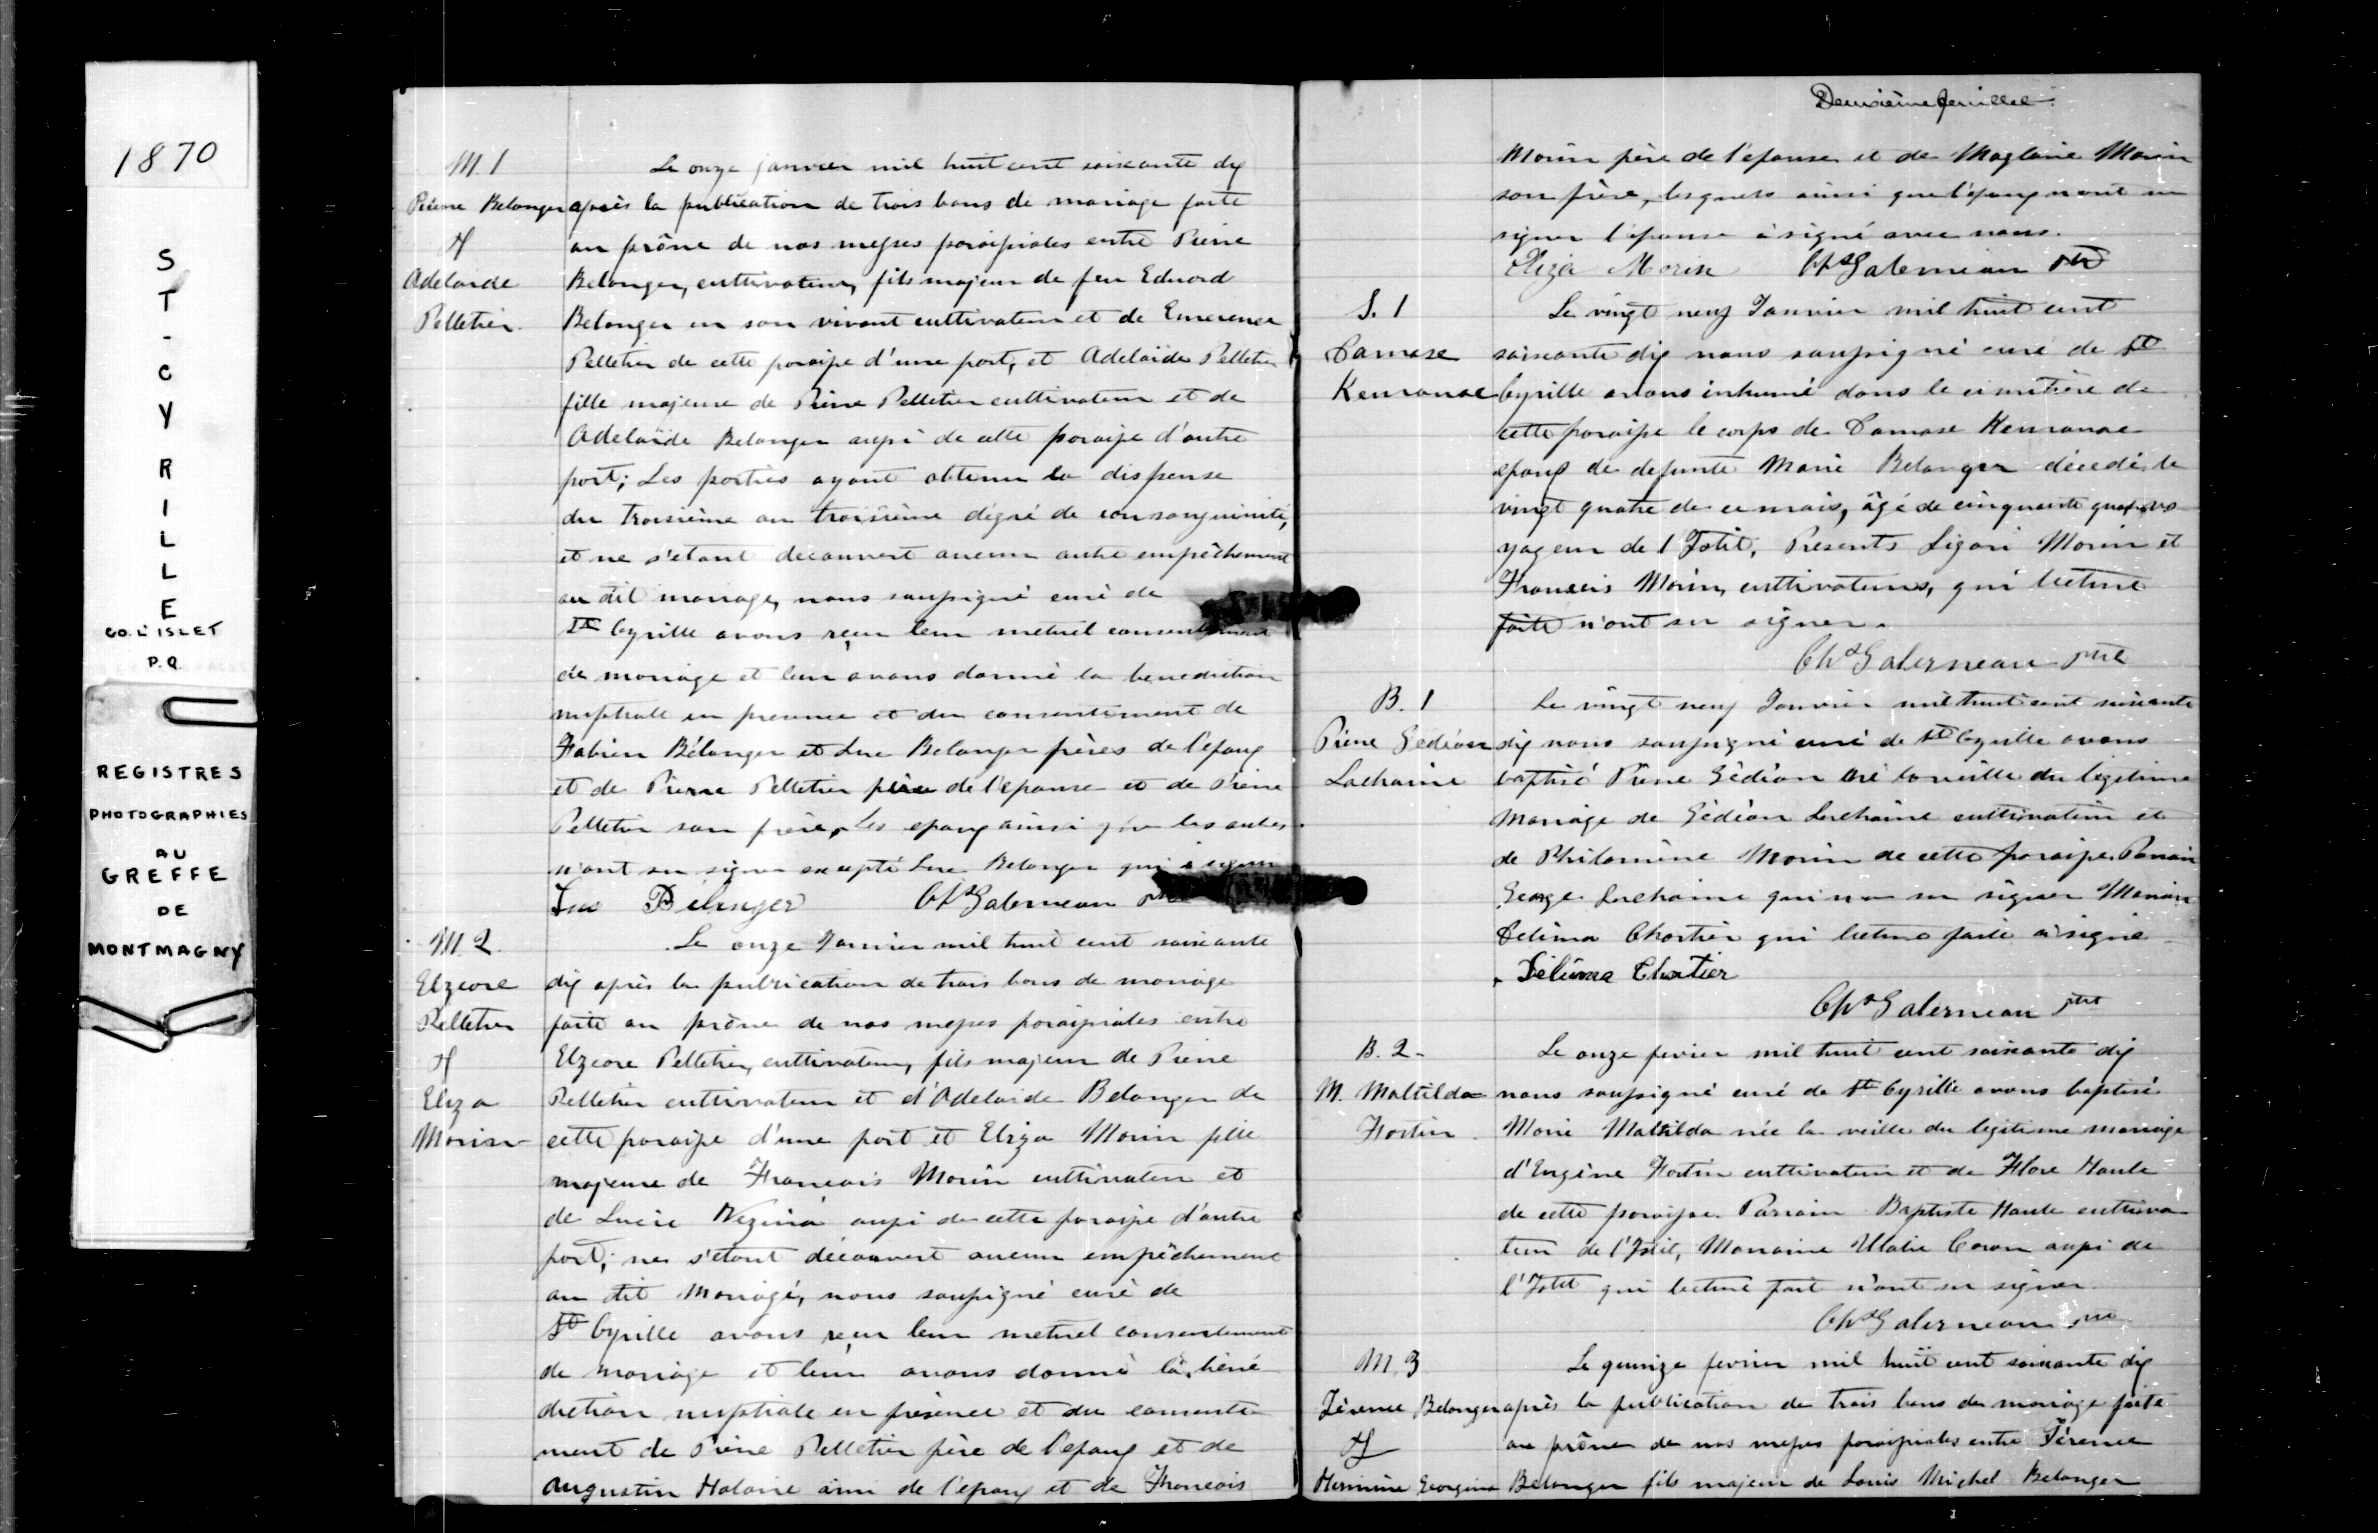 1870
ST-CYRILLE
CO. L'ISLET
P.Q.
REGISTRES
PHOTOGRAPHIES
AU
GREFFE
DE
MONTMAGNY
M. 1
Pierre Belanger
&
Adelaide
Pelletier
Le onze janvier mil huit cent soixante dix
après la publication de trois bans de mariage faite
au prône de nos messes paroissiales entre Pierre
Belanger, cultivateur, fils majeur de feu Edward
Belanger en son vivant cultivateur et de Emerence
Pelletier de cette paroisse d'une part, et Adelaïde Pelletier
fille majeure de Pierre Pelletier cultivateur et de
Adelaïde Belanger aussi de cette paroisse d'autre
part; Les parties ayant obtenu la dispense
du troisième au troisième dégré de consanguinité,
et ne s'etant decouvert aucun autre empêchement
au dit mariage, nous soussigné curé de
St Cyrille avons reçu leur mutuel consentement
de mariage et leur avons donné la benediction
nuptiale en presence et du consentement de
Fabien Bélanger et Luc Belanger frères de l'epoux
et de Pierre Pelletier père de l'epouse et de Pierre
Pelletier son frère, Les epoux ainsi que les autres
n'ont su signer excepté Luc Belanger qui a signé
Luc Bélenger Chs Galerneau ptre
M. 2.
Elzeore
Pelletier
&
Eliza
Morin
Le onze Janvier mil huit cent soixante
dix après la publication de trois bans de mariage
faite au prône de nos messes paroissiales entre
Elzeore Pelletier, cultivateur, fils majeur de Pierre
Pelletier cultivateur et d'Adelaide Belanger de
cette paroisse d'une part et Eliza Morin fille
majeure de Francois Morin cultivateur et
de Lucie Vezina aussi de cette paroisse d'autre
part; ne s'etant découvert aucun empêchement
au dit mariage, nous soussigné curé de
St Cyrille avons reçu leur mutuel consentement
de mariage et leur avons donné la béné
diction nuptiale en présence et du consente
ment de Pierre Pelletier père de l'epoux et de
Augustin ami de l'epoux et de Francois
Deuxième feuillet
Morin père de l'épouse et de Magloire Morin
son frère, lesquels ainsi que l'époux n'ont su
signer l'épouse a signé avec nous.
Eliza Morin Chs Galerneau ptre
S. 1
Damase
Kerouac
Le vingt neuf Janvier mil huit cent
soixante dix nous soussigné curé de St
Cyrille avons inhumé dans le cimetière de
cette paroisse le corps de Damase Kerouac
epoux de defunte Marie Belanger décedé le
vingt quatre de ce mois, âgé de cinquante quatre vo
yageur de l'Islet; Presents Ligori Morin et
Francois Morin, cultivateurs, qui lecture
faite n'ont su signer.
Chs Galerneau ptre
B. 1
Pierre Gedéon
Lachaine
Le vingt neuf Janvier mil huit cent soixante
dix nous soussigné curé de St Cyrille avons
baptisé Pierre Gédéon né la veille du légitime
Mariage de Gédéon Lachaine cultivateur et
de Philomène Morin de cette paroisse. Parrain
George Lachaine qui n'a su signer Marraine
Delima Chartier qui lecture faite a signé
Délima Chatier
Chs Galerneau ptre
B. 2.
M. Mathilda
Fortin
Le onze fevrier mil huit cent soixante dix
nous soussigné curé de St Cyrille avons baptisé
Marie Mathilda née la veille du legitime mariage
d'Eugène Fortin cultivateur et de Flore
de cette paroisse. Parrain Baptiste cultiva
teur de l'Islet, Marraine Ulalie Caron aussi de
l'Islet qui lecture fait n'ont su signer.
Chs Galerneau ptre
M. 3
Térence Belanger
&
Hermine Georgina
Le quinze fevrier mil huit cent soixante dix
après la publication de trois bans de mariage faite
au prône de nos messes paroissiales entre Térence
Belanger fils majeur de Louis Michel Belanger